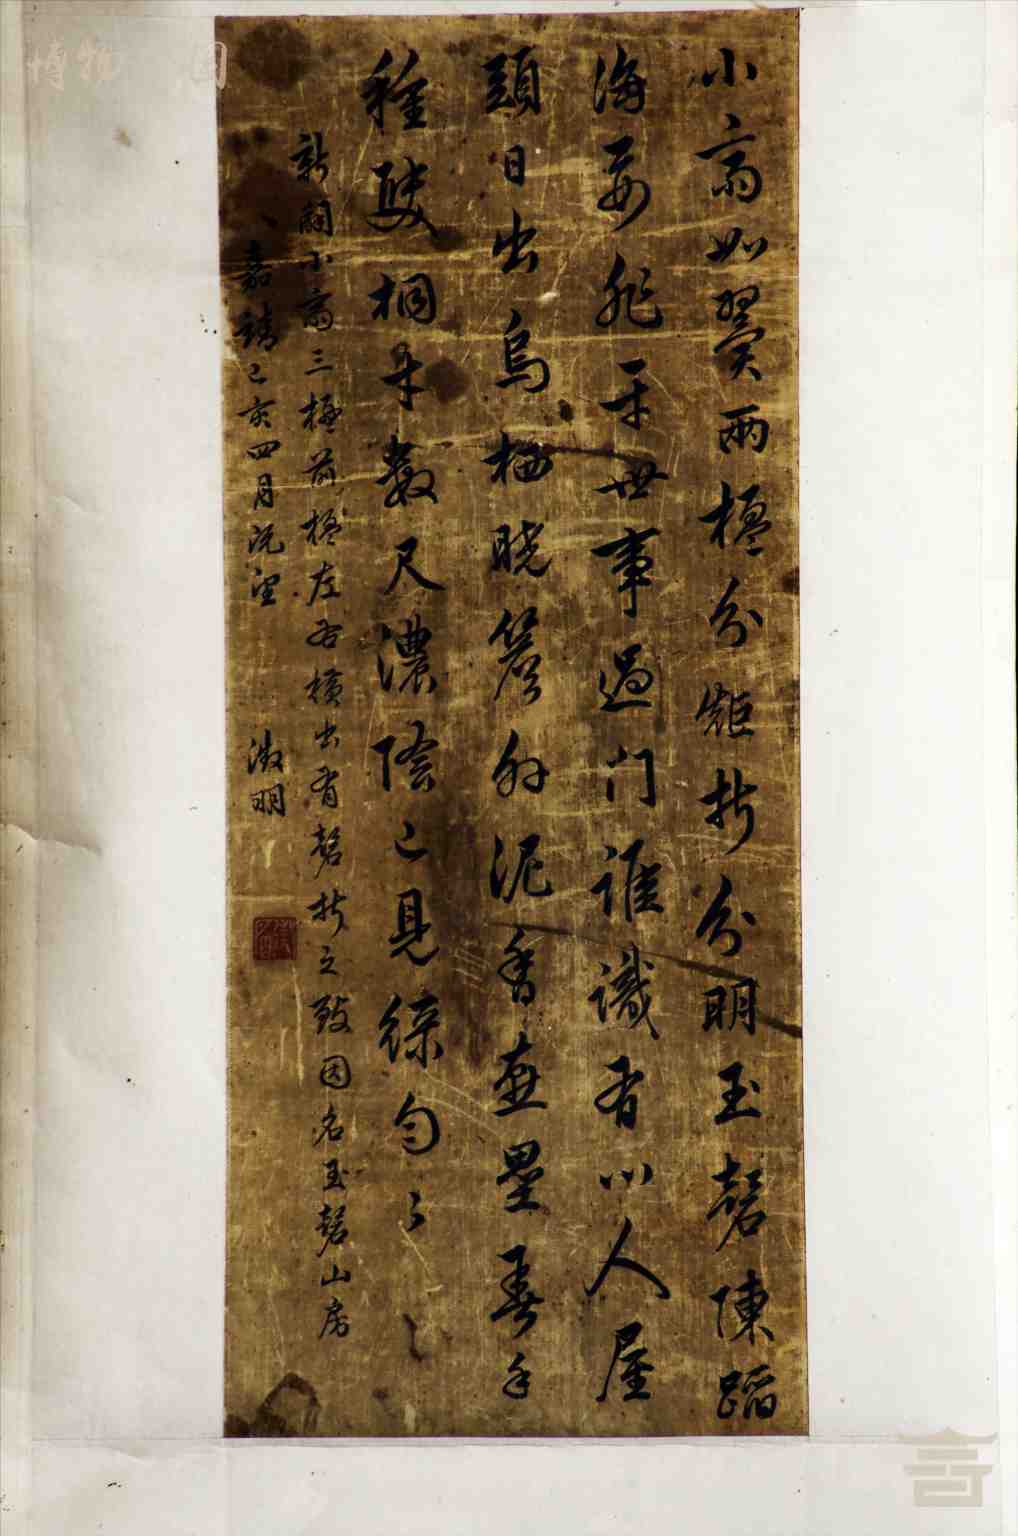 小斋如翼两楹分矩折分明玉磬陈蹈
海要非千世事过门谁识有心人屋
头日出乌栖晓檐外泥香燕垒春手
种双桐才数尺浓阴已见绿匀匀
新辟小斋三楹前楹左右横出有磬折之致因名玉磬山房
嘉靖己亥四月既望 徵明
博物